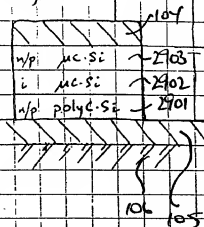 104
n/p μc-Si 2903
i μc-Si 2902
n/p polyc-Si 2901
106 105